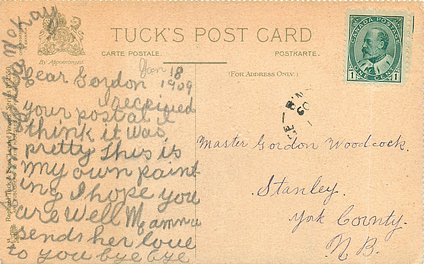 TUCK'S POST CARD
CARTE POSTALE.
POSTKARTE.
(FOR ADDRESS ONLY.)
By Appointment
CANADA POSTAGE
1 1
Jan 18
1909
Dear Gordon
I received
your postal I
think it was
pretty This is
my own paint
ing I hope you
are well Mamma
sends her love
to you bye bye
McKay
Master Gordon Woodcock.
Stanley.
York County.
N.B.